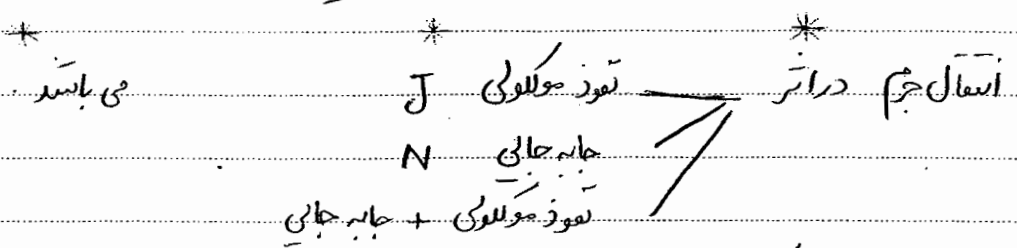 * * *
انتقال جرم در اثر نفوذ مولکولی J می باشد.
جابه جایی N
نفوذ مولکولی + جابه جایی